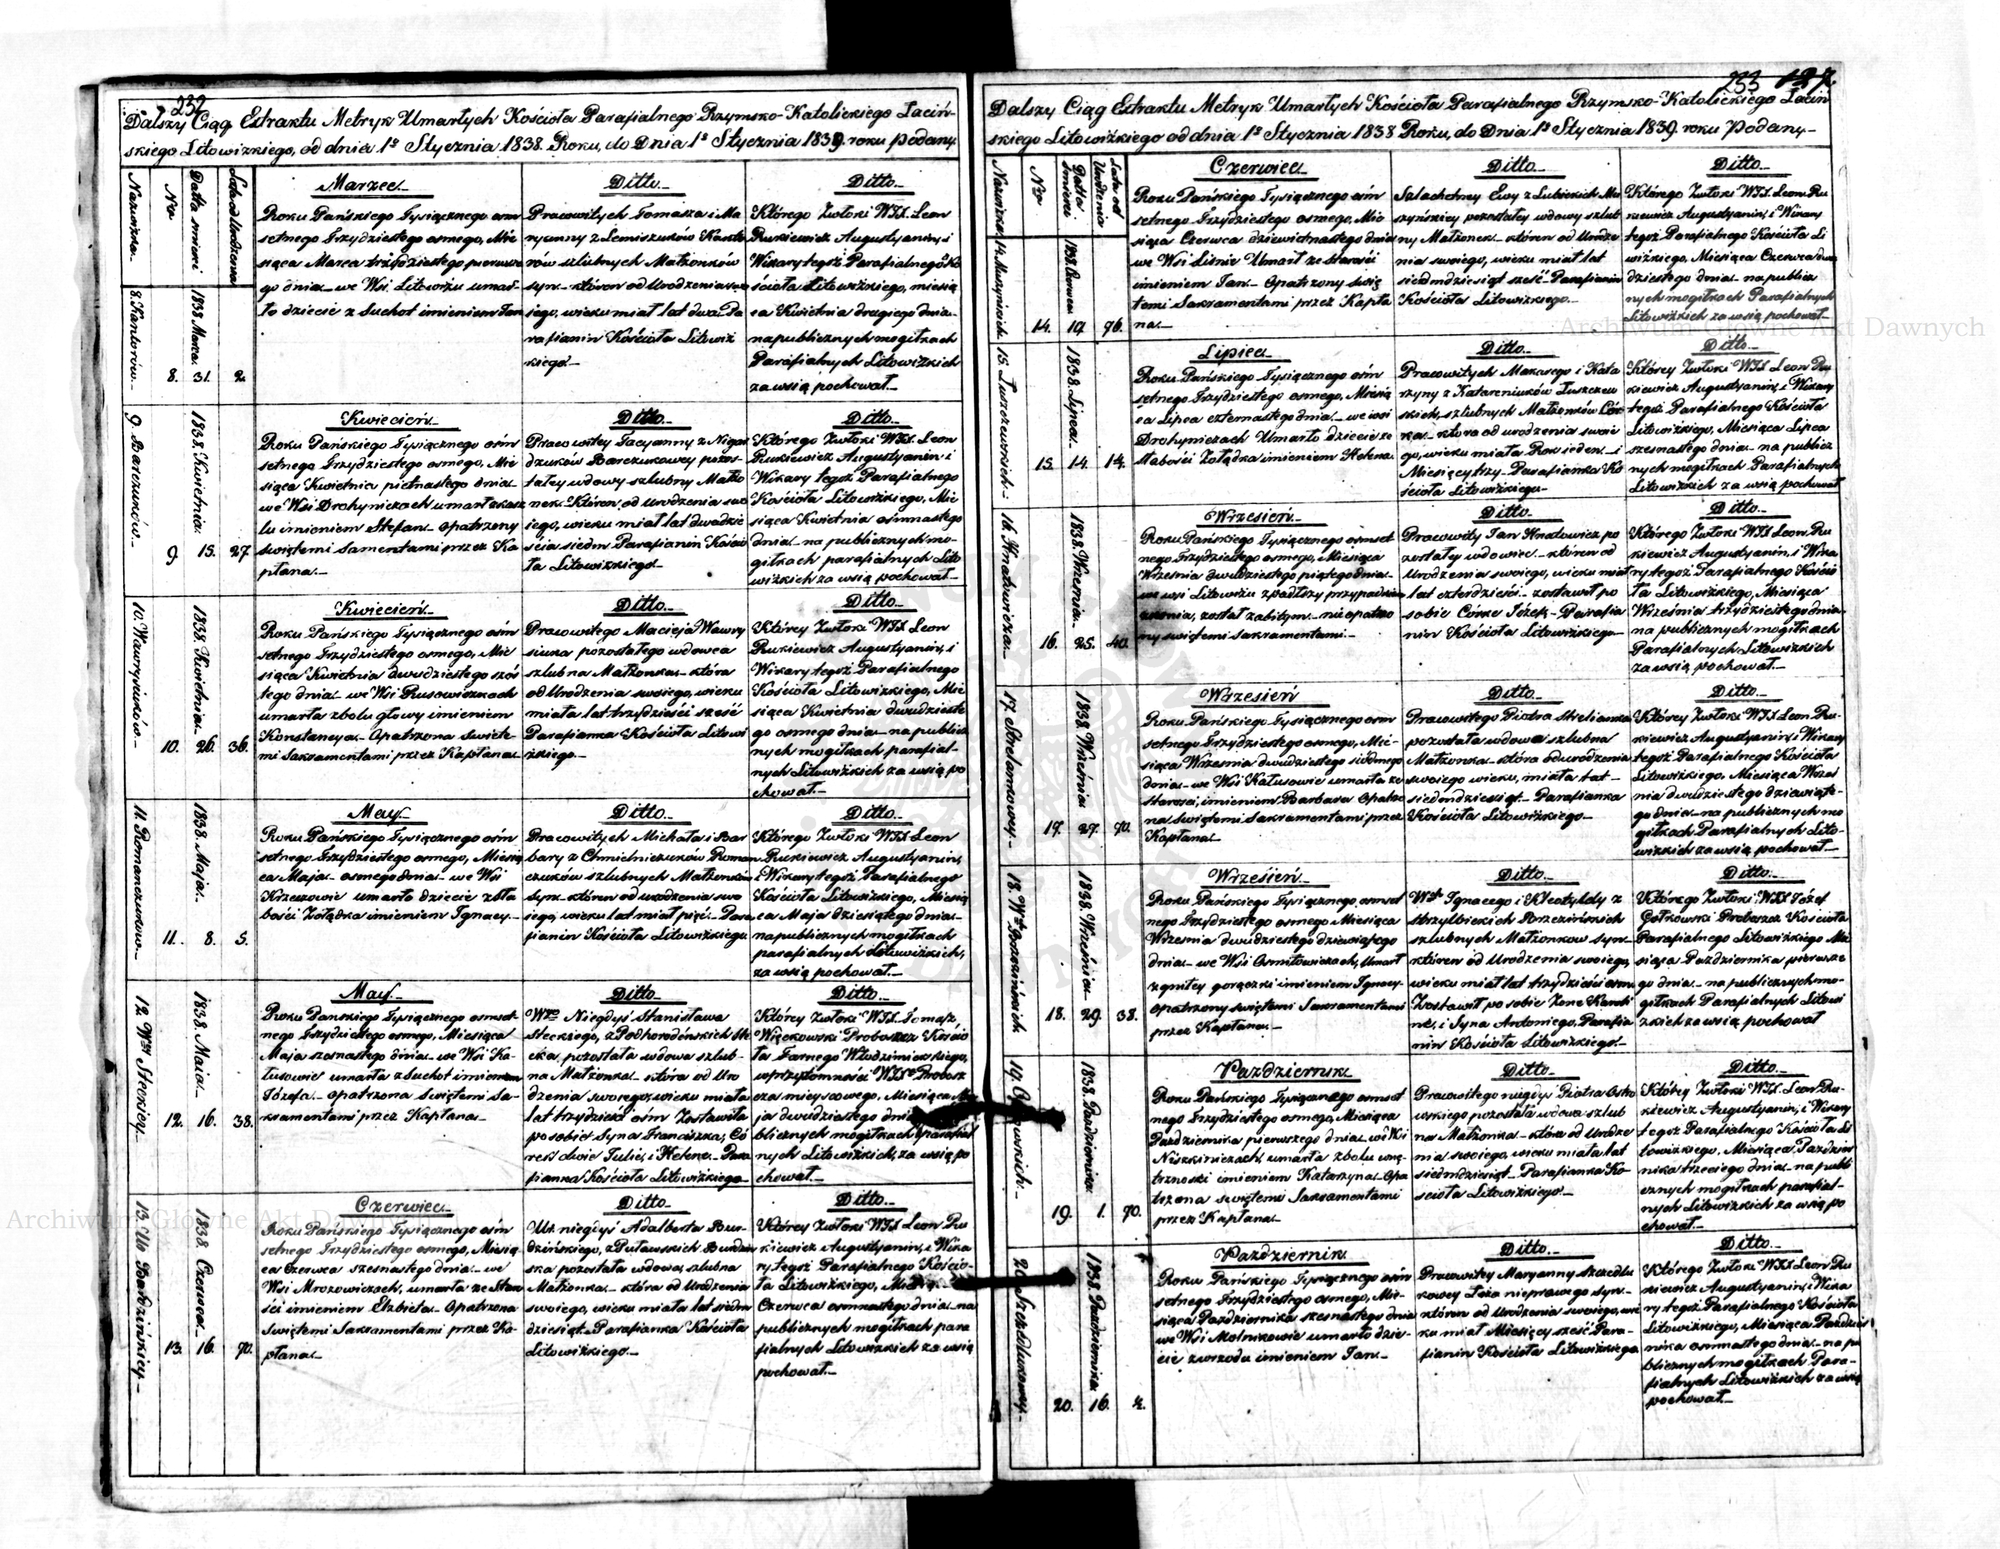 232
Dalszy Ciąg Extraktu Metryk Umarłych Kościoła Parafialnego Rzymsko-Katolickiego Laciń-
skiego Litowizkiego, od dnia 1º Stycznia 1838 Roku, do Dnia 1º Stycznia 1839 roku podany
Nazwiska.
Nr.
Datta śmierci
Lata od Urodzenia
8. Kantorów.
1838 Marca.
8. 31. 2.
Marzec.
Roku Pańskiego Tysiącznego ośm
setnego Trzydziestego osmego, Mie
siąca Marca trzydziestego pierwsze
go dnia we Wsi Litowiżu umar
ło dziecie z Suchot imieniem Jan
Ditto.
Pracowitych Tomasza i Ma
ryanny z Lemiszuków Kanto
rów szlubnych Małżonków
syn któren od Urodzenia swo
jego, wieku miał lat dwa Pa
rafianin Kościoła Litowiż
kiego.
Ditto.
Którego Zwłoki WJX Leon
Rukiewicz Augustyanin, i
Wikary tegoż Parafialnego Ko
ścioła Litowiżkiego, miesią
ca Kwietnia drugiego dnia.
na publicznych mogiłkach
Parafialnych Litowiżkich
za wsią pochował.
9. Barczuków.
1838. Kwietnia.
9. 15. 27.
Kwiecień.
Roku Pańskiego Tysiącznego ośm
setnego Trzydziestego osmego, Mie
siąca Kwietnia pietnastego dnia
we Wsi Drohyniczach umarł z kasz
lu imieniem Stefan opatrzony
świętemi Samentami przez Ka
płana.
Ditto.
Pracowitey Tacyanny z Nigor
dzuków Barczukowey pozos-
tałey wdowy szlubny Małżo
nek Któren od Urodzenia swo
jego, wieku miał lat dwadzie
ścia siedm Parafianin Kościo
ła Litowiżkiego.
Ditto.
Którego Zwłoki WJX Leon
Rukiewicz Augustyanin i
Wikary tegoż Parafialnego
Kościoła Litowiżkiego, Mie
siąca Kwietnia osmnastego
dnia na publicznych mo-
giłkach parafialnych Lito
wiżkich za wsią pochował.
10. Wawrysiuków.
1838. Kwietnia.
10. 26. 36.
Kwiecień.
Roku Pańskiego Tysiącznego ośm
setnego Trzydziestego osmego, Mie
siąca Kwietnia dwudziestego szós
tego dnia we Wsi Rusowiczkach
umarła z bolu głowy imieniem
Konstancya Opatrzona Święte
mi Sakramentami przez Kapłana.
Ditto.
Pracowitego Macieja Wawry
siuka pozostałego wdowca
szlubna Małżonka która
od Urodzenia swojego, wieku
miała lat trzydzieści sześć
Parafianka Kościoła Litowi
żkiego.
Ditto.
Którey Zwłoki WJX Leon
Rukiewicz Augustyanin, i
Wikary tegoż Parafialnego
Kościoła Litowiżkiego, Mie
siąca Kwietnia dwudzieste
go osmego dnia na public
znych mogiłkach parafial-
nych Litowiżkich za wsią po
chował.
11. Romanczuków.
1838. Maja.
11. 8. 5.
May.
Roku Pańskiego Tysiącznego ośm
setnego Trzydziestego osmego, Miesią
ca Maja osmego dnia we Wsi
Krzeczowie umarło dziecie z sła
bości Żołądka imieniem Ignacy.
Ditto.
Pracowitych Michała i Bar
bary z Chmielniczuków Roman
czuków szlubnych Małżonków
syn któren od urodzenia swo
jego, wieku lat miał pięć. Para
fianin Kościoła Litowiżkiego.
Ditto.
Którego Zwłoki WJX Leon
Rukiewicz Augustyanin,
i Wikary tegoż Parafialnego
Kościoła Litowiżkiego, Miesią
ca Maja dziesiątego dnia
na publicznych mogiłkach
parafialnych Litowiżkich,
za wsią pochował.
12. Steckiey.
1838. Maia.
12. 16. 38.
May.
Roku Pańskiego Tysiącznego osmset
nego Trzydziestego osmego, Miesiąca
Maja szesnastego dnia we Wsi Ka-
łusowie umarła z Suchot imieniem
Józefa opatrzona Świętemi Sa-
kramentami przez Kapłana.
Ditto.
Niegdyś Stanisława
Steckiego, z Podhorodeńskich Ste
cka, pozostała wdowa szlub-
na Małżonka która od Uro
dzenia swojego, wieku miała
lat trzydzieści ośm Zostawiła
po sobie Syna Franciszka, Có
rek dwie Julie, i Helene. Para
fianka Kościoła Litowiżkiego
Ditto.
Którey Zwłoki WJX Tomasz
Więckowski Proboszcz Kościo
ła Farnego Włodzimierskiego,
w przytomności WJX Probosz
cza mieyscowego, Miesiąca Ma
ja dwudziestego dnia
blicznych mogiłkach parafial
nych Litowiżkich, za wsią po
chował.
13. Burdzińskiey.
1838. Czerwca.
13. 16. 70.
Czerwiec.
Roku Pańskiego Tysiącznego ośm
setnego Trzydziestego osmego, Miesią
ca Czerwca szesnastego dnia we
Wsi Mrozowiczach, umarła ze Staro
ści imieniem Elżbieta Opatrzona
Świętemi Sakramentami przez Ka-
płana.
Ditto.
Ur. niegdyś Adalberta Bur-
dzińskiego, z Puławskich Burdziń
ska pozostała wdowa, szlubna
Małżonka która od Urodzenia
swojego, wieku miała lat siedm
dziesiąt Parafianka Kościoła
Litowiżkiego.
Ditto.
Którey Zwłoki WJX Leon Ru
kiewicz Augustyanin, i Wika
ry tegoż Parafialnego Kościo-
ła Litowiżkiego,
Czerwca osmnastego dnia na
publicznych mogiłkach para
fialnych Litowiżkich za wsią
pochował.
233 127.
Dalszy Ciąg Extraktu Metryk Umarłych Kościoła Parafialnego Rzymsko-Katolickiego Laciń
skiego Litowiżkiego od dnia 1º Stycznia 1838 Roku, do Dnia 1º Stycznia 1839. roku Podany
Nazwiska
Nr.
Datta śmierci
Lata od Urodzenia
1838 Czerwca
14. 19. 76.
Czerwiec.
Roku Pańskiego Tysiącznego ośm
setnego Trzydziestego osmego, Mie
siąca Czerwca dziewietnastego dnia
we Wsi Liśnie Umarł ze starości
imieniem Jan Opatrzony świę
temi Sakramentami przez Kapła
na.
Ditto.
Szlachetney Ewy z Lubickich Mu
szyńskiey pozostałey wdowy szlub
ny Małżonek któren od Urodze
nia swojego, wieku miał lat
siedmdziesiąt sześć Parafianin
Kościoła Litowiżkiego.
Ditto.
Którego Zwłoki WJX Leon Ru
kiewicz Augustyanin, i Wikary
tegoż Parafialnego Kościoła Li
towiżkiego, Miesiąca Czerwca dwu
dziestego dnia na publicz
nych mogiłkach Parafialnych
Litowiżkich za wsią pochował.
1838. Lipca.
15. 14. 14.
Lipiec.
Roku Pańskiego Tysiącznego ośm
setnego Trzydziestego osmego, Miesią
ca Lipca czternastego dnia we wsi
Drohyniczach Umarło dziecie ze
słabości Żołądka imieniem Helena
Ditto.
Pracowitych Makarego i Kata
rzyny z Katareniuków Luszczew
skich, szlubnych Małżonków Cór-
ka która od urodzenia swoie
go, wieku miała Rok ieden i
Miesięcy trzy Parafianka Ko
ścioła Litowiżkiego.
Ditto.
Którey Zwłoki WJX Leon Ru
kiewicz Augustyanin, i Wikary
tegoż Parafialnego Kościoła
Litowiżkiego, Miesiąca Lipca
szesnastego dnia na publicz
nych mogiłkach Parafialnych
Litowiżkich za wsią pochował
16. Hnatowicza.
1838. Września.
16. 25. 40.
Wrzesień.
Roku Pańskiego Tysiącznego osmset
nego Trzydziestego osmego, Miesiąca
Września dwudziestego piątego dnia
we wsi Litowiżu spadłszy
został zabitym nie opatrzo
ny świętemi Sakramentami.
Ditto.
Pracowity Jan Hnatowicz po
zostały wdowiec któren od
Urodzenia swojego, wieku miał
lat czterdzieści zostawił po
sobie Córke Józefę Parafia
nin Kościoła Litowiżkiego
Ditto.
Którego Zwłoki WJX Leon Ru
kiewicz Augustyanin, i Wika
ry tegoż Parafialnego Kościo
ła Litowiżkiego, Miesiąca
Września trzydziestego dnia
na publicznych mogiłkach
Parafialnych Litowiżkich
za wsią pochował.
17. Strelankowey.
1838. Września.
17. 27. 70.
Wrzesień
Roku Pańskiego Tysiącznego ośm
setnego Trzydziestego osmego, Mie-
siąca Września dwudziestego siódmego
dnia we Wsi Kałusowie umarła ze
Starości, imieniem Barbara Opatrzo
na świętemi Sakramentami przez
Kapłana.
Ditto.
Pracowitego Piotra Strelianka
pozostała wdowa szlubna
Małżonka która od urodzenia
swojego wieku, miała lat
siedmdziesiąt Parafianka
Kościoła Litowiżkiego.
Ditto.
Którey Zwłoki WJX Leon Ru-
kiewicz Augustyanin, i Wikary
tegoż Parafialnego Kościoła
Litowiżkiego, Miesiąca Wrześ
nia dwudziestego dziewiąte-
go dnia na publicznych mo
giłkach Parafialnych Lito-
wiżkich za wsią pochował.
18. Brzezińskich
1838. Września
18. 29. 38.
Wrzesień.
Roku Pańskiego Tysiącznego, osmset
nego Trzydziestego osmego Miesiąca
Września dwudziestego dziewiątego
dnia we Wsi Ośmiłowiczach, Umarł
z gniłey gorączki imieniem Ignacy
opatrzony świętemi Sakramentami
przez Kapłana.
Ditto.
Ignacego i Kleotyldy z
Strzyłbickich Brzezińskich
szlubnych Małżonkow syn
któren od Urodzenia swojego,
wieku miał lat trzydzieści ośm
Zostawił po sobie Żone Karoli
nę, i Syna Antoniego, Parafia
nin Kościoła Litowiżkiego.
Ditto.
Którego Zwłoki WJX Józef
Gotkowski Proboszcz Kościoła
Parafialnego Litowiżkiego Mie
siąca Października pierwsze
go dnia na publicznych mo-
giłkach Parafialnych Litowi
żkich za wsią pochował
1838. Października.
19. 1. 70.
Październik.
Roku Pańskiego Tysiącznego osmset
nego Trzydziestego osmego, Miesiąca
Października pierwszego dnia we Wsi
Niszkiniczach, umarła z bolu wnę
trzności imieniem Katarzyna Opa
trzona świętemi Sakramentami
przez Kapłana.
Ditto.
Pracowitego niegdyś Piotra
pozostała wdowa szlub
na Małżonka która od Urodze
nia swojego, wieku miała lat
siedmdziesiąt Parafianka Ko-
ścioła Litowiżkiego.
Ditto.
Którey Zwłoki WJX Leon Ru-
kiewicz Augustyanin, i Wikary
tegoż Parafialnego Kościoła Li
towiżkiego, Miesiąca Paździer
nika trzeciego dnia na publi
cznych mogiłkach parafial-
nych Litowiżkich za wsią po
chował.
20. Szczedlukowey.
1838. Października
20. 16. ½.
Październik.
Roku Pańskiego Tysiącznego ośm
setnego Trzydziestego osmego, Mie-
siąca Października szesnastego dnia
we Wsi Mołnikowie umarło dzie-
cie z wrzodu imieniem Jan.
Ditto.
Pracowitey Maryanny Szczedlu
kowey Łoża nieprawego syn
któren od Urodzenia swojego, wie
ku miał Miesięcy sześć Para-
fianin Kościoła Litowiżkiego
Ditto.
Którego Zwłoki WJX Leon Ru
kiewicz Augustyanin, i Wika
ry tegoż Parafialnego Kościoła
Litowiżkiego, Miesiąca Paździer
nika osmnastego dnia na pu
blicznych mogiłkach Para-
fialnych Litowiżkich za wsią
pochował.
Archiwum Główne Akt Dawnych
Archiwum Główne Akt Dawnych